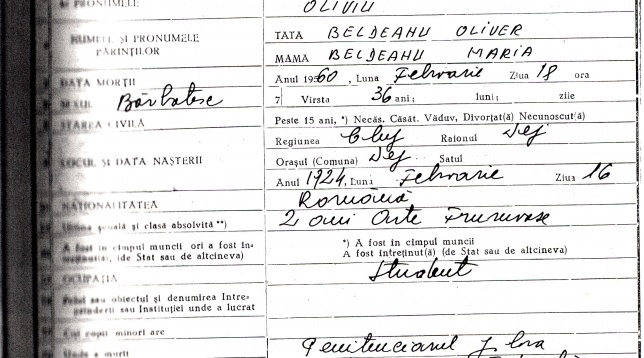 PRONUMELE OLIVIU
NUMELE ȘI PRONUMELE PĂRINȚILOR
TATA BELDEANU OLIVER
MAMA BELDEANU MARIA
DATA MORȚII Anul 1960, Luna Februarie Ziua 18 ora
SEXUL Bărbătesc 7 Vîrsta 36 ani; luni; zile
STAREA CIVILĂ Peste 15 ani, *) Necăs. Căsăt. Văduv, Divorțat(ă) Necunoscut(ă)
LOCUL ȘI DATA NAȘTERII Regiunea Cluj Raionul Dej
Orașul (Comuna) Dej Satul
Anul 1924, Luna Februarie Ziua 16
NAȚIONALITATEA Română
școală și clasă absolvită **) 2 ani Arte Frumoase
A fost în cîmpul muncii ori a fost (de Stat sau de altcineva) *) A fost în cîmpul muncii
A fost întreținut(ă) (de Stat sau de altcineva)
OCUPAȚIA Student
Felul sau obiectul și denumirea Între-
prinderii sau Instituției unde a lucrat
Cîți copii minori are
Unde a murit Penitenciarul Jilava